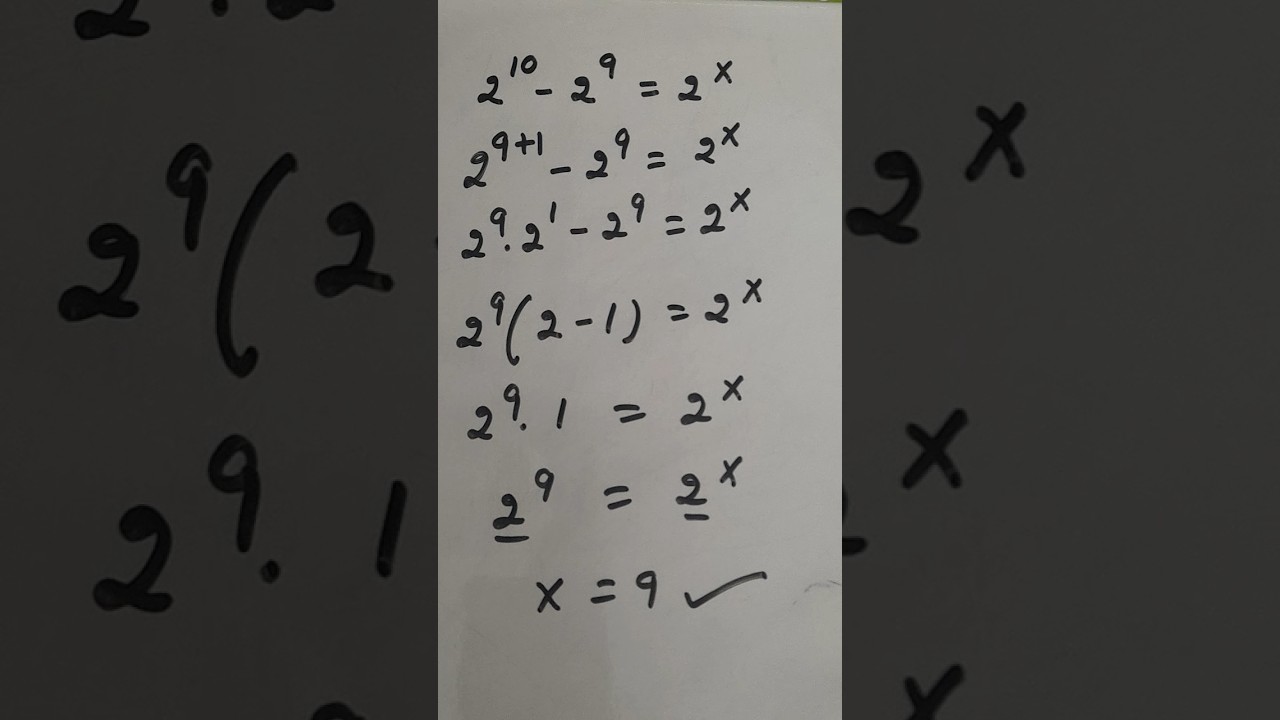 2^10 - 2^9 = 2^x
2^9+1 - 2^9 = 2^x
2^9 . 2^1 - 2^9 = 2^x
2^9 (2 - 1) = 2^x
2^9 . 1 = 2^x
2^9 = 2^x
x = 9 ✓